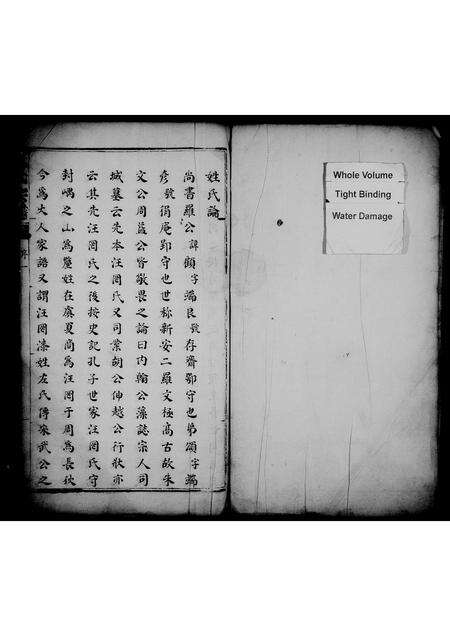 姓氏論
尚書羅公諱顏字端良號存齋鄂守也弟頌字端
彥號狷庵郢守也世称新安二羅文極高古故朱
文公周益公皆敬畏之論曰內翰公藻誌宗人司
城墓云先本汪罔氏又司業訓公伸越公行狀亦
云其先汪罔氏之後按史記孔子世家汪罔氏守
封嵎之山為釐姓在虞夏商為汪罔于周為長狄
今為大人家語又謂汪罔漆姓左氏傳宋武公之
Whole Volume
Tight Binding
Water Damage